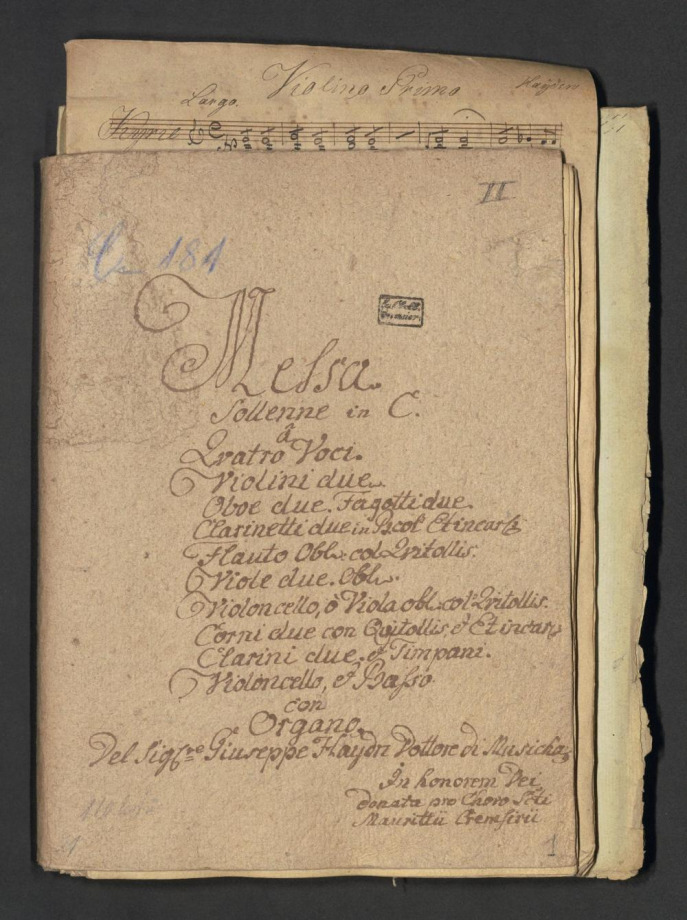 Violino Primo
Hayden
Largo.
Kyrie
II
181
Messa.
Sollenne in C.
à
Qvatro Voci.
Violini due.
Oboe due. Fagotti due.
Clarinetti due in Et incar:
Flauto Obl: col Qvitollis.
Viole due. Obl:
Violoncello, ò Viola obl: col Qvitollis.
Corni due con Qvitollis, è Et incar:
Clarini due. è Timpani.
Violoncello, è Basso
con
Organo.
Del Sig:re Giuseppe Haydn Dottore di Musicha
In honorem Dei
donata pro Choro Scti
Mauritii Cremsirii
1